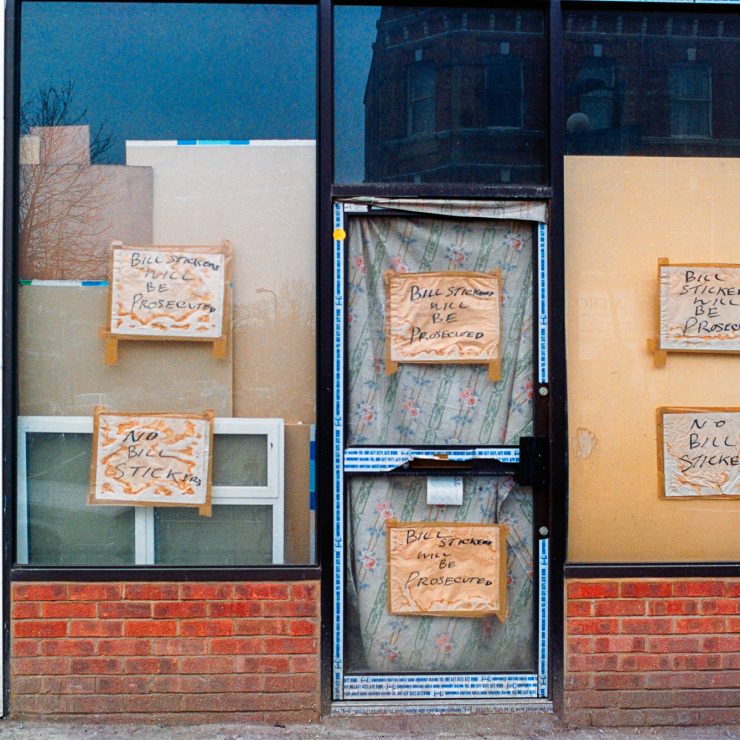 BILL STICKERS
WILL
BE
PROSECUTED
NO
BILL
STICKERS
BILL STICKERS
WILL
BE
PROSECUTED
BILL
STICKERS
WILL
BE
PROSECUTED
BILL
STICKER
WILL
BE
PROSECU
NO
BILL
STICKE